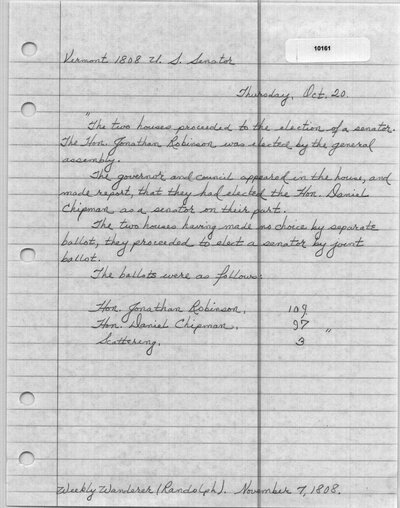 10161
Vermont 1808 U. S. Senator
Thursday, Oct. 20.
"The two houses proceeded to the election of a senator.
The Hon. Jonathan Robinson was elected by the general
assembly.
The governor and council appeared in the house, and
made report, that they had elected the Hon. Daniel
Chipman as a senator on their part.
The two houses having made no choice by separate
ballot, they proceeded to elect a senator by joint
ballot.
The ballots were as follows:
Hon. Jonathan Robinson, 109
Hon. Daniel Chipman, 97 "
Scattering, 3
Weekly Wanderer (Randolph). November 7, 1808.